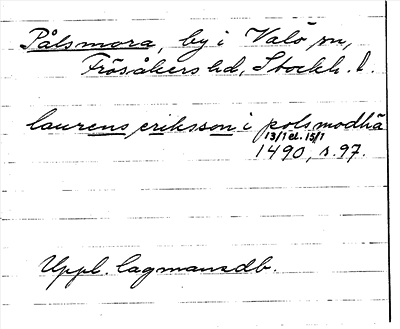 Pålsmora, by i Valö sn,
Frösåkers hd, Stockh. l.
laurens eriksson i polsmodhä
13/1 el. 15/1
1490, s. 97.
Uppl. lagmansdb.